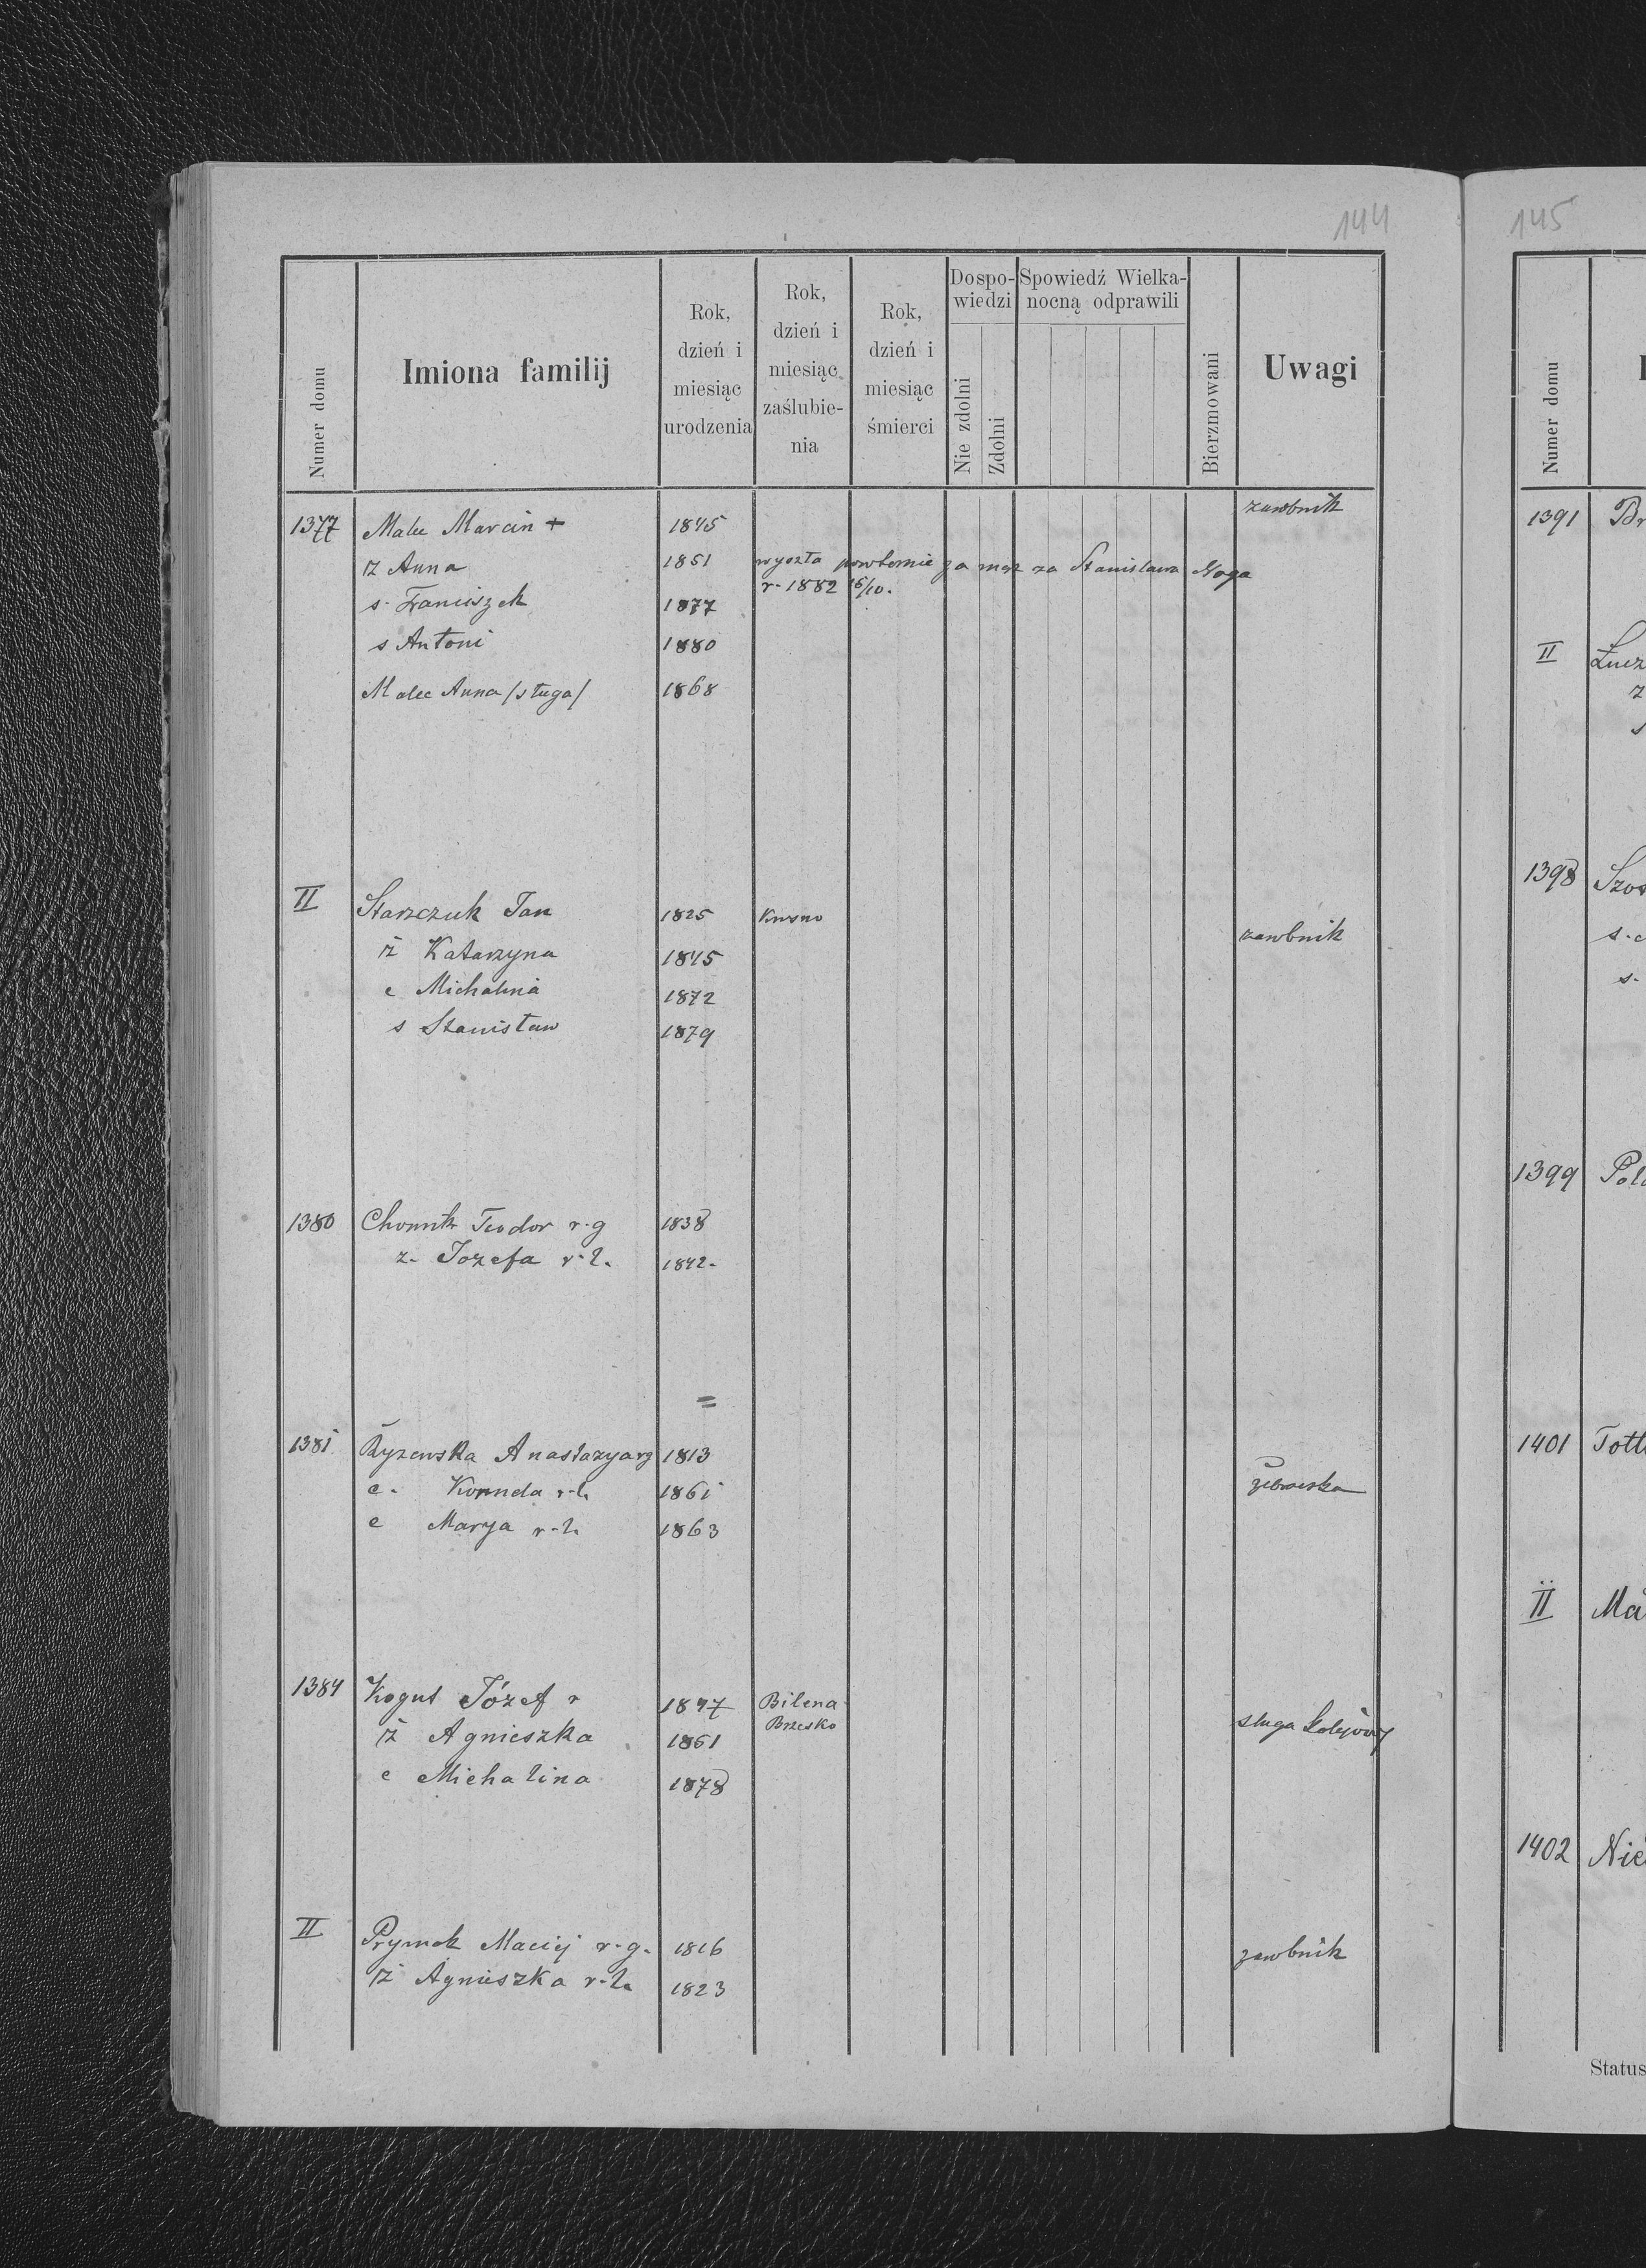 144
145
Numer domu
Imiona familij
Rok, dzień i miesiąc urodzenia
Rok, dzień i miesiąc zaślubienia
Rok, dzień i miesiąc śmierci
Dospowiedzi
Nie zdolni
Zdolni
Spowiedź Wielkanocną odprawili
Bierzmowani
Uwagi
1377 Malec Marcin + 1845 zarobnik
ż Anna 1851 wyszła powtornie za mąż za Stanisława Noga
r. 1882 16/10.
s. Franciszek 1877
s Antoni 1880
Malec Anna /sługa/ 1868
II Starzczuk Jan 1825 zarobnik
ż Katarzyna 1845
c Michalina 1872
s Stanisław 1879
1380 Teodor r-g 1838
z. Jozefa r.l. 1842.
1381 Anastazya rg 1813
c. r-l. 1861
c Marya r-l. 1863
1384 Kogut Józef r 1847 Bilena
Brzesko
ż Agnieszka 1851 sługa kolejowy
c Michalina 1878
II Prymak Maciej r-g. 1816 zarobnik
ż Agnieszka r-l. 1823
Numer domu
1391 Br
II
z
s
1398
s.
1399 Pol
1401 Tott
II Ma
1402 Nie
Status